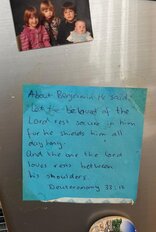 About Benjamin he said:
"Let the beloved of the
Lord rest secure in him
for he shields him all
day long,
And the one the Lord
loves rests between
his shoulders.
Deuteronomy 33:12